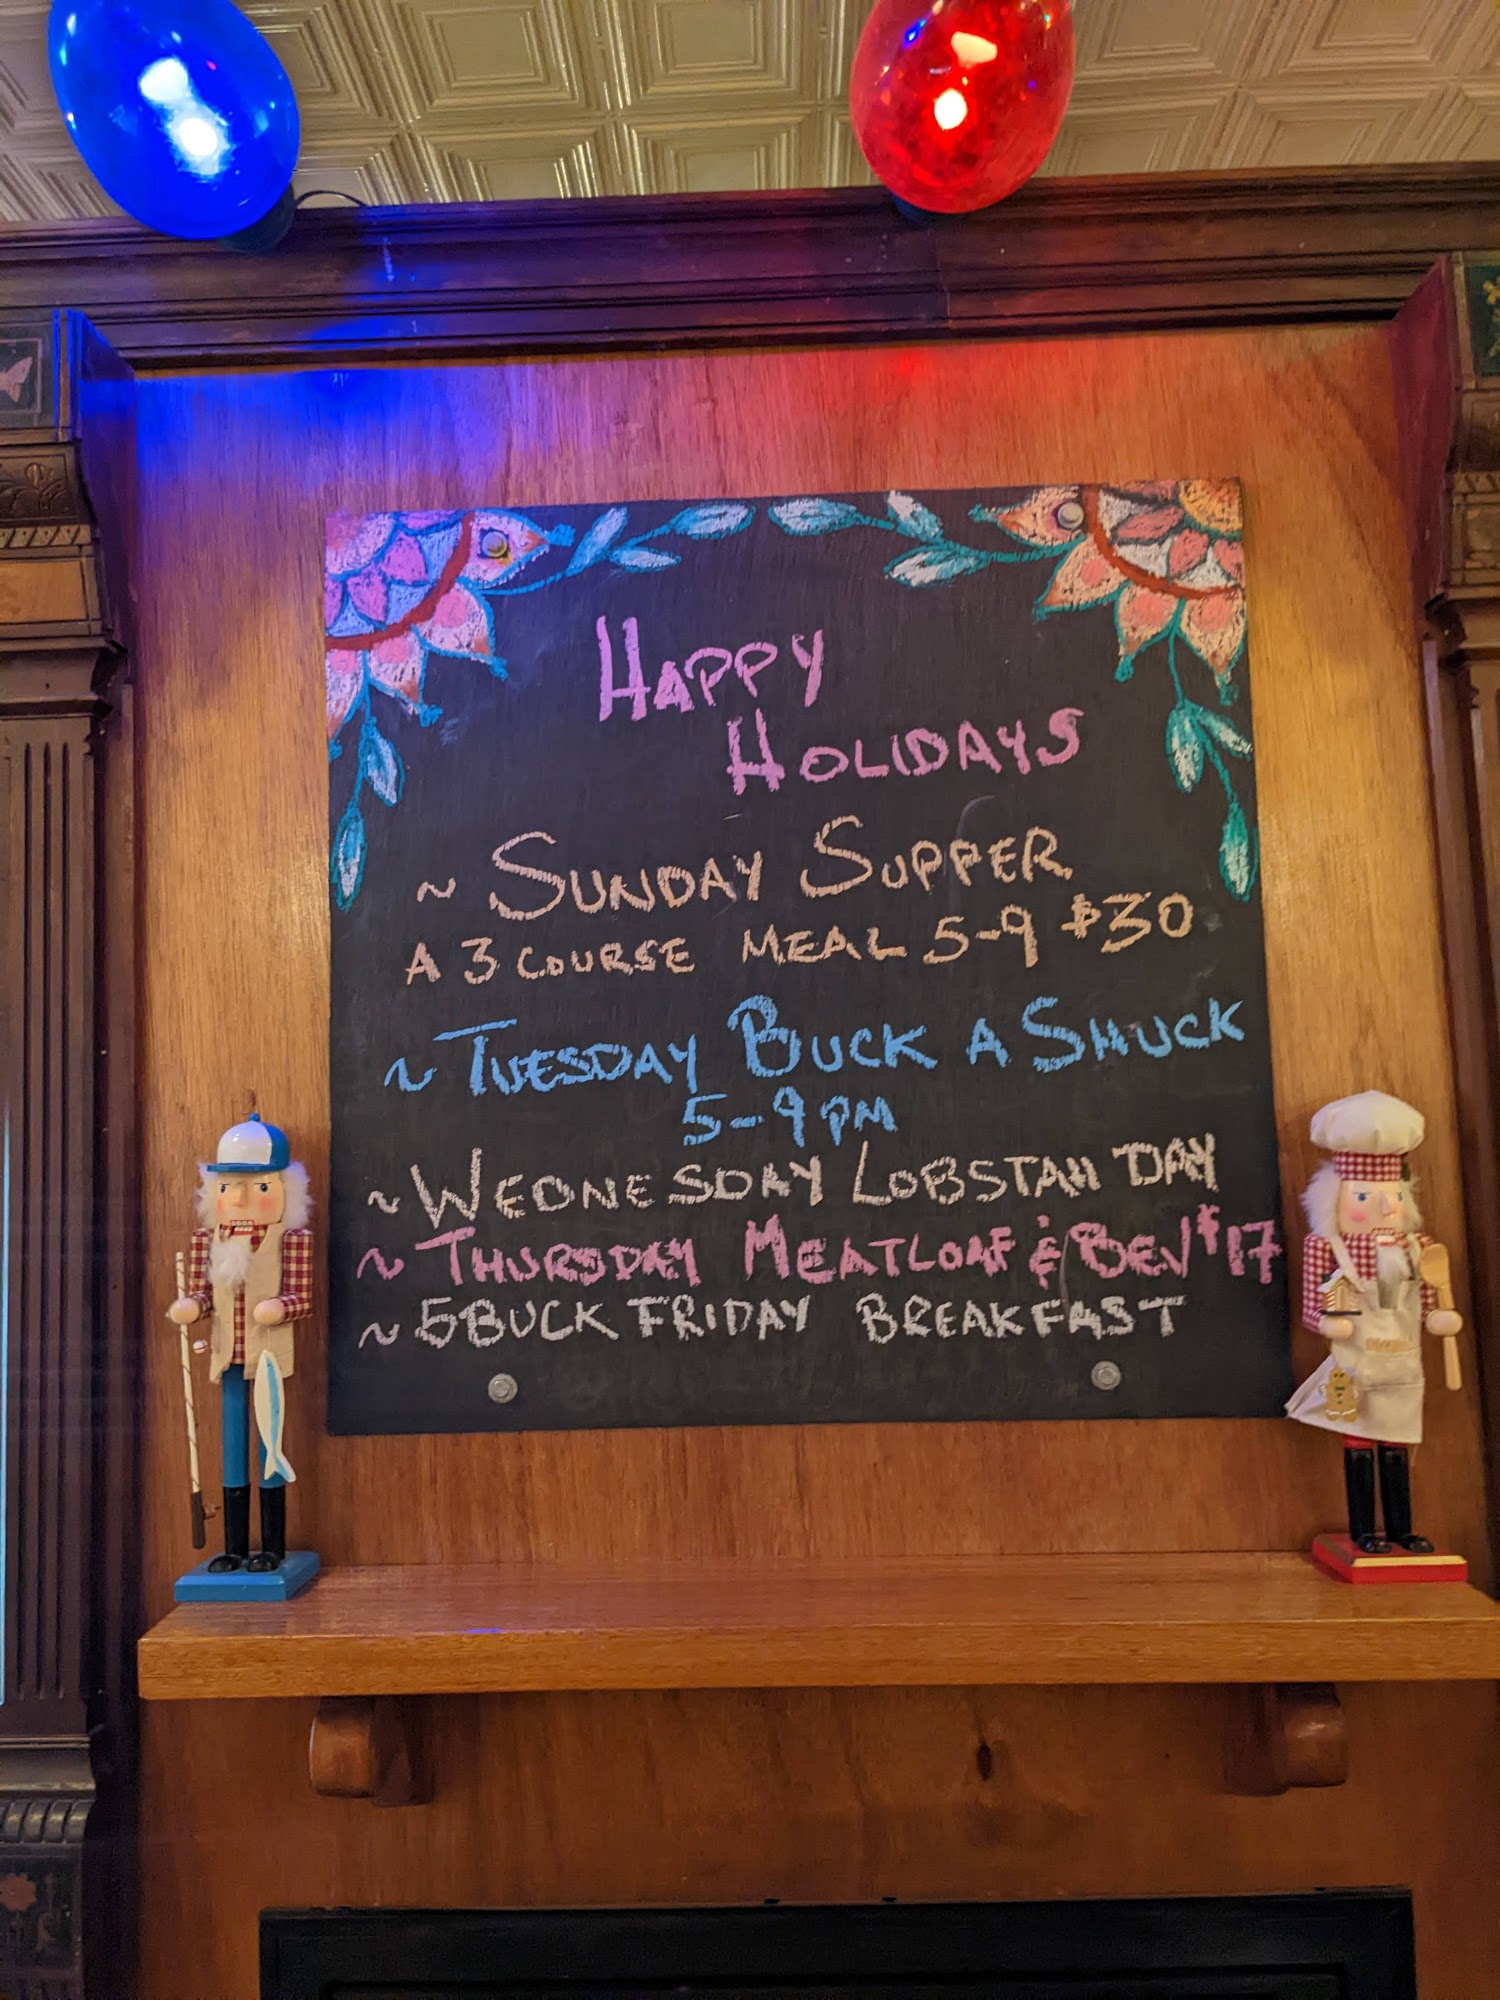 HAPPY
HOLIDAYS
~ SUNDAY SUPPER
A 3 COURSE MEAL 5-9 $30
~ TUESDAY BUCK A SHUCK
5-9 PM
~ WEDNESDAY LOBSTAH DAY
~ THURSDAY MEATLOAF & BEV $17
~ 5 BUCK FRIDAY BREAKFAST